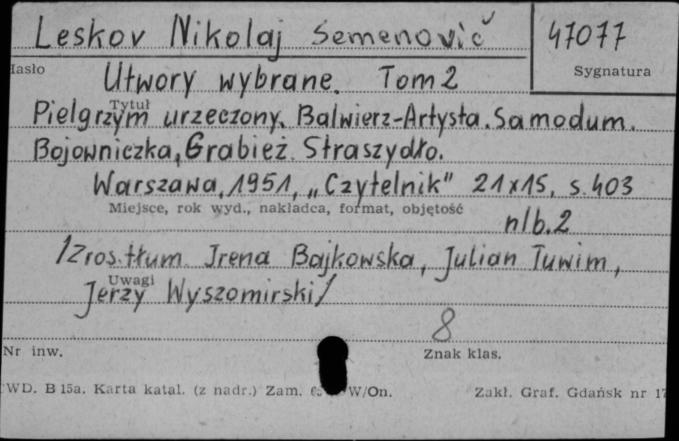 Leskov Nikolaj Semenovič 47077
Hasło Sygnatura
Utwory wybrane. Tom 2
Tytuł
Pielgrzym urzeczony. Balwierz-Artysta. Samodum.
Bojowniczka, Grabież. Straszydło.
Warszawa, 1951, „Czytelnik" 21x15, s. 403
Miejsce, rok wyd., nakładca, format, objętość
nlb. 2
/Z ros. tłum. Irena Bajkowska, Julian Tuwim,
Uwagi
Jerzy Wyszomirski/
8
Nr inw. Znak klas.
WD. B 15a. Karta katal. (z nadr.) Zam. W/On. Zakł. Graf. Gdańsk nr 17